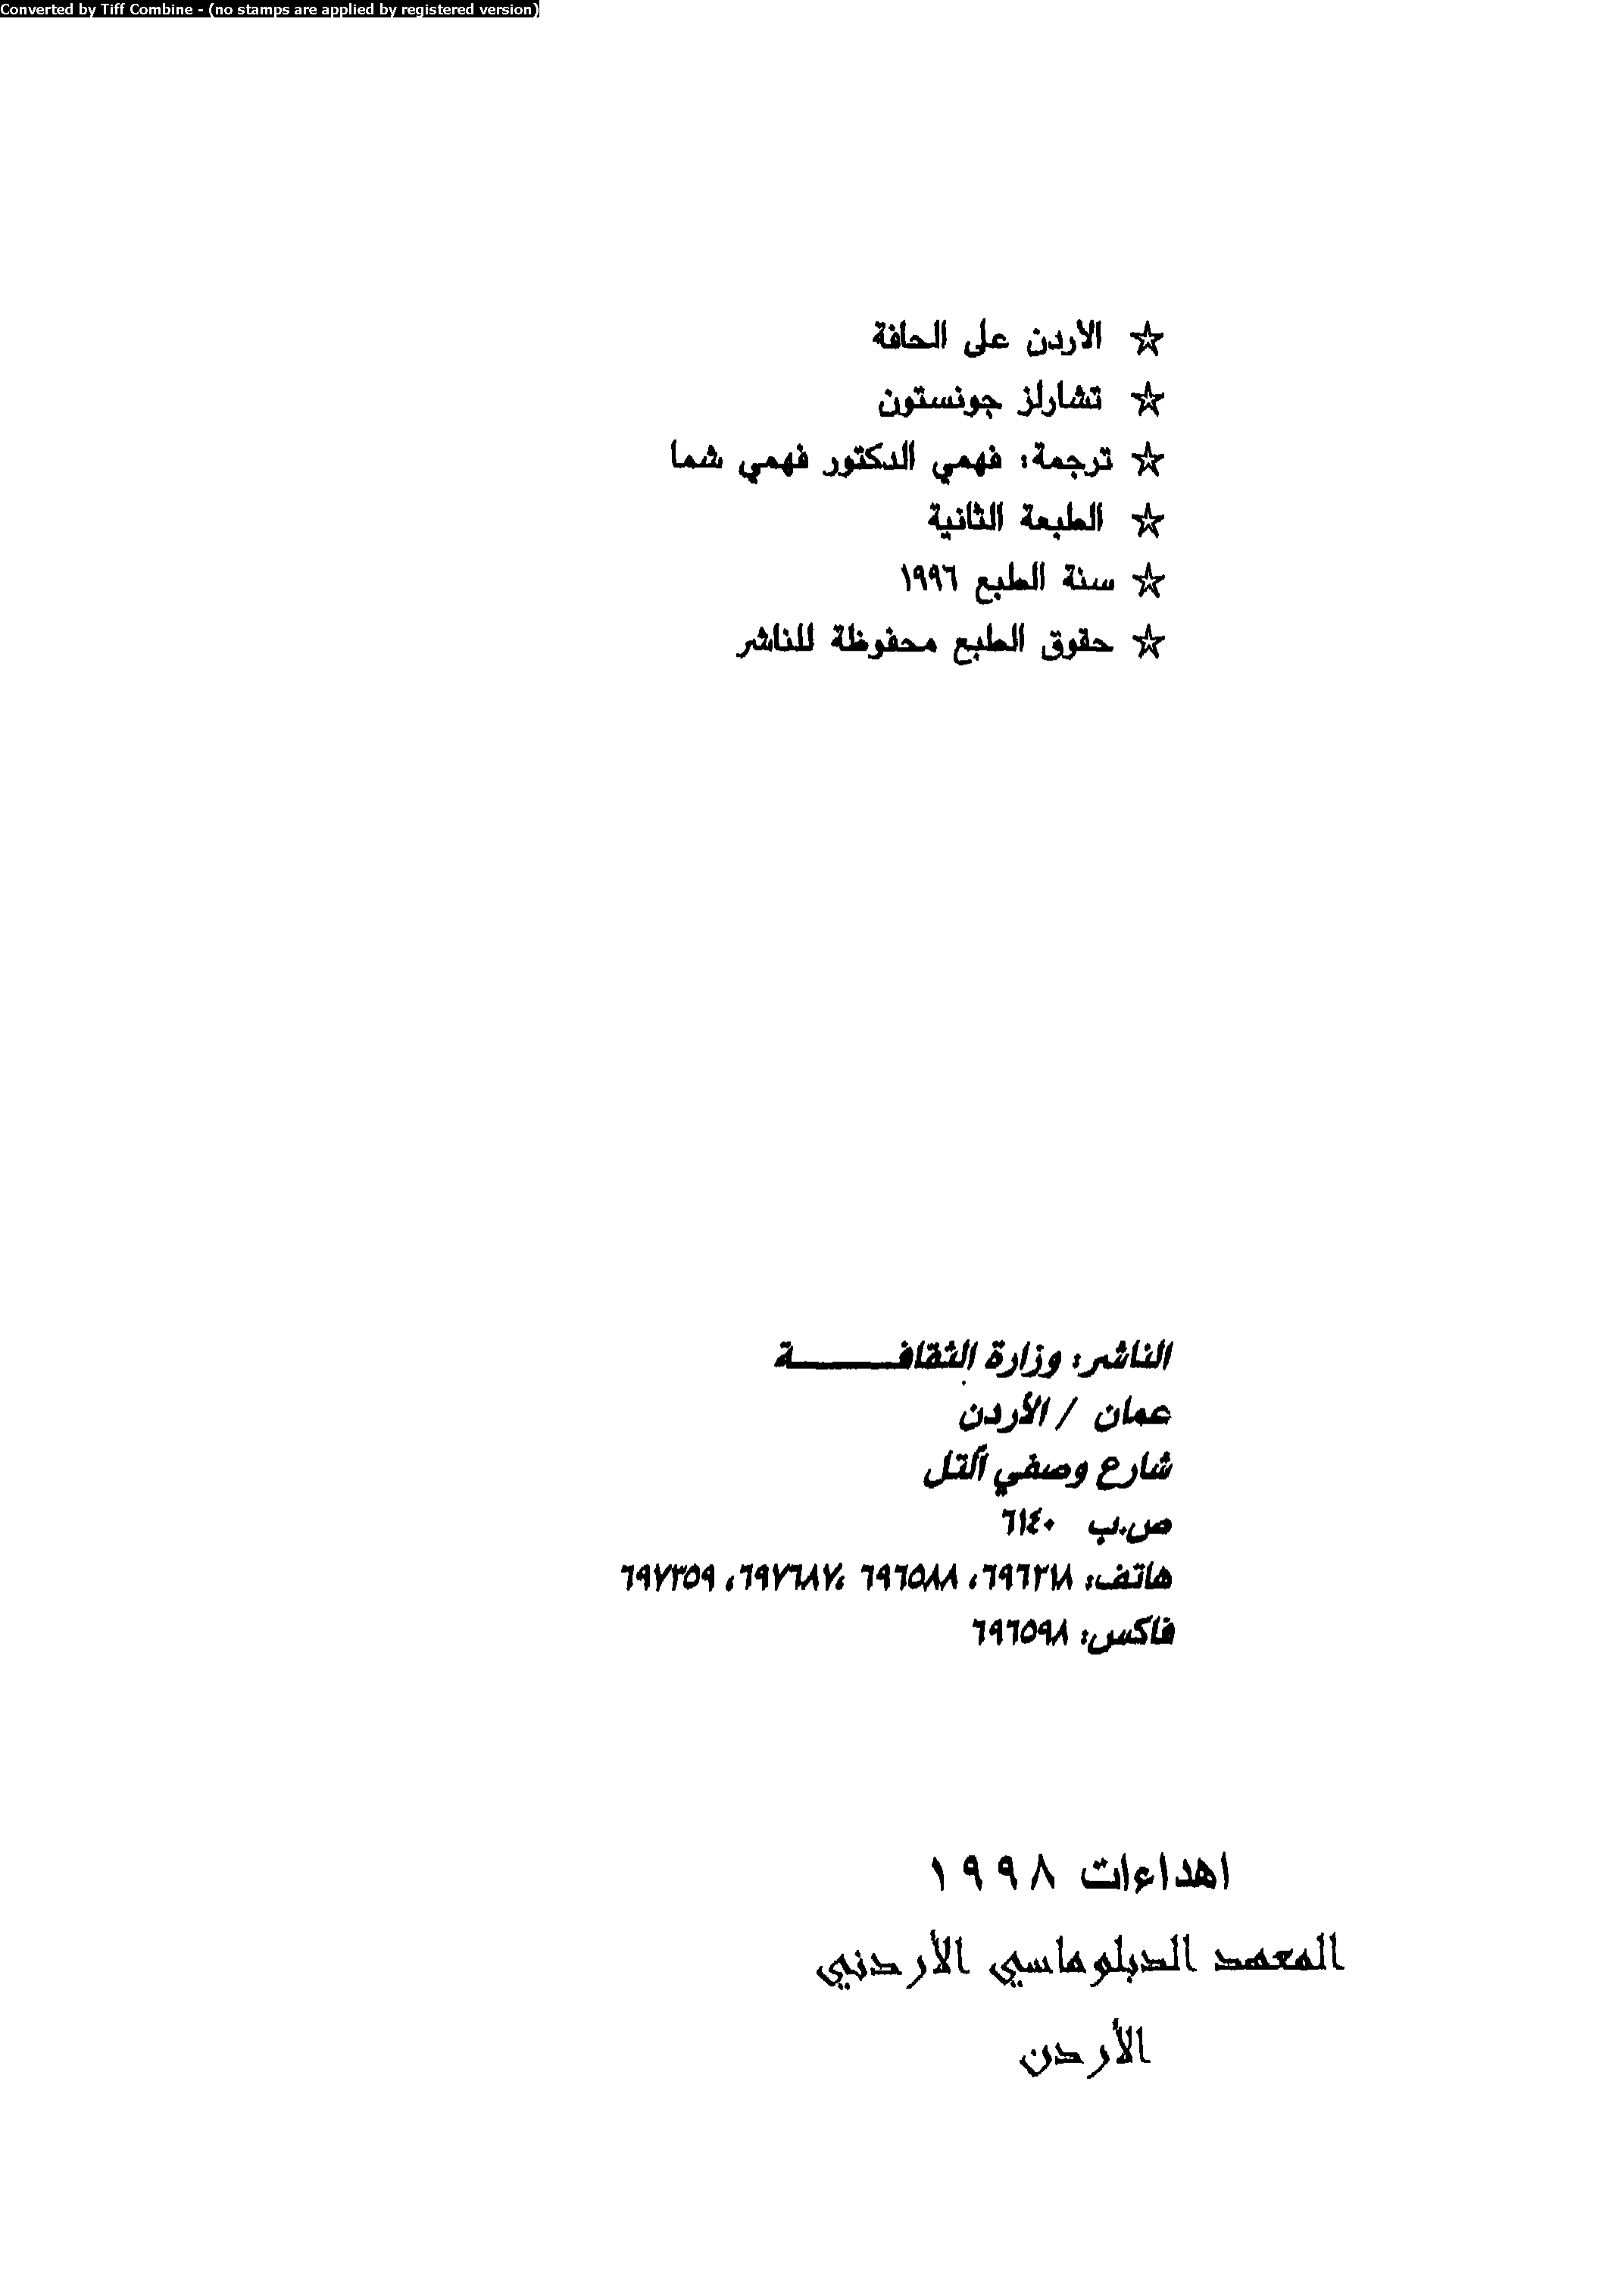 Converted by Tiff Combine - (no stamps are applied by registered version)
☆ الاردن على الحافة
☆ تشارلز جونستون
☆ ترجمة: فهمي الدكتور فهمي شما
☆ الطبعة الثانية
☆ سنة الطبع ١٩٩٦
☆ حقوق الطبع محفوظة للناشر
الناشر: وزارة الثقافـــــــة
عمان / الأردن
شارع وصفي التل
ص.ب ٦١٤٠
هاتف: ٦٩٦٢١٨، ٦٩٦٥٨٨ ،٦٩٧٦٨٧، ٦٩٧٣٥٩
فاكس: ٦٩٦٥٩٨
اهداءات ١٩٩٨
المعهد الدبلوماسي الأردني
الأردن